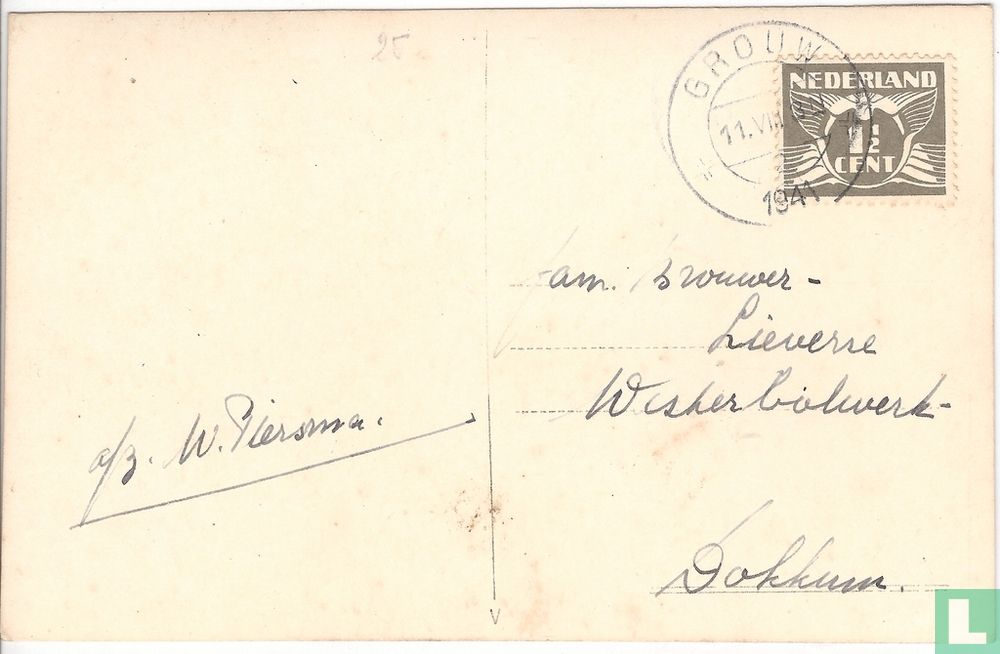 25
GROUW
11.VIII
1941
NEDERLAND
1½
CENT
fam. Brouwer-
Lieverse
Westerbolwerk-
Dokkum.
a/z. W. Piersma.
V
L